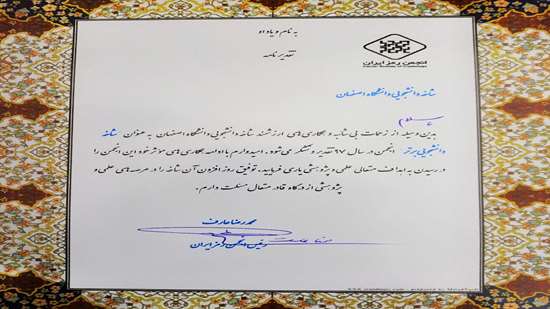 به نام و یاد او
تقدیرنامه
انجمن رمز ایران
شاخه دانشجویی دانشگاه اصفهان
با سلام
بدین وسیله از زحمات بی شائبه و همکاری های ارزشمند شاخه دانشجویی دانشگاه اصفهان به عنوان شاخه
دانشجویی برتر انجمن در سال ۹۷ تقدیر و تشکر می شود. امیدوارم با ادامه همکاری های موثر خود این انجمن را
در رسیدن به اهداف متعالی علمی و پژوهشی یاری فرمایید. توفیق روز افزون آن شاخه را در عرصه های علمی و
پژوهشی از درگاه قادر متعال مسئلت دارم.
محمدرضا عارف
رئیس انجمن رمز ایران